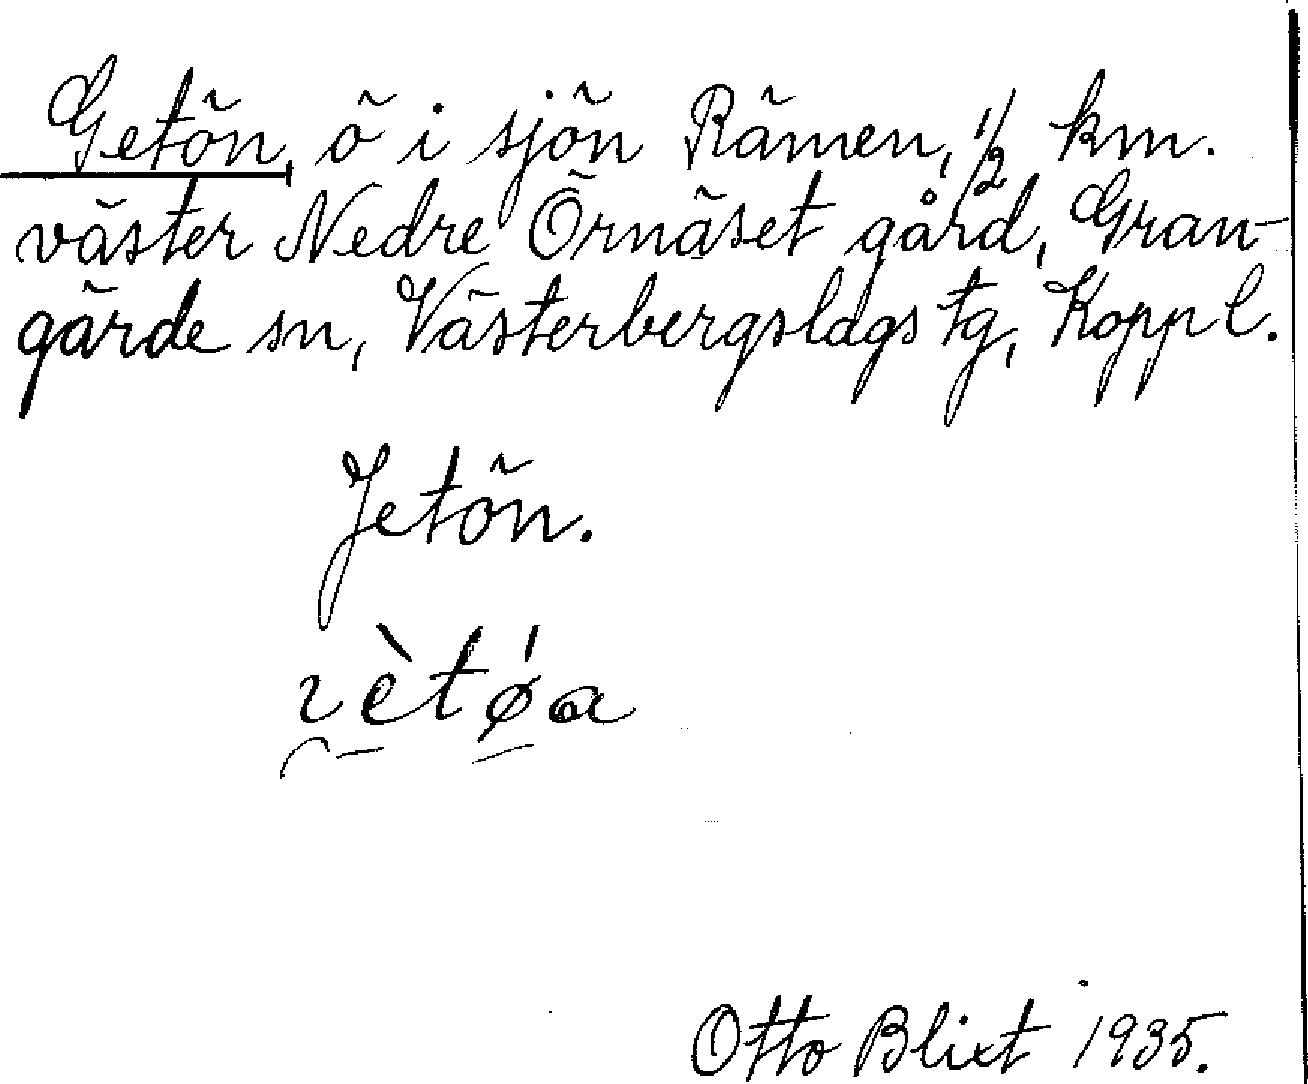 Getön, ö i sjön Rämen, 1/2 km.
väster Nedre Örnäset gård, Gran-
gärde sn, Västerbergslags tg, Koppl.
Jetön.
Otto Blixt 1935.